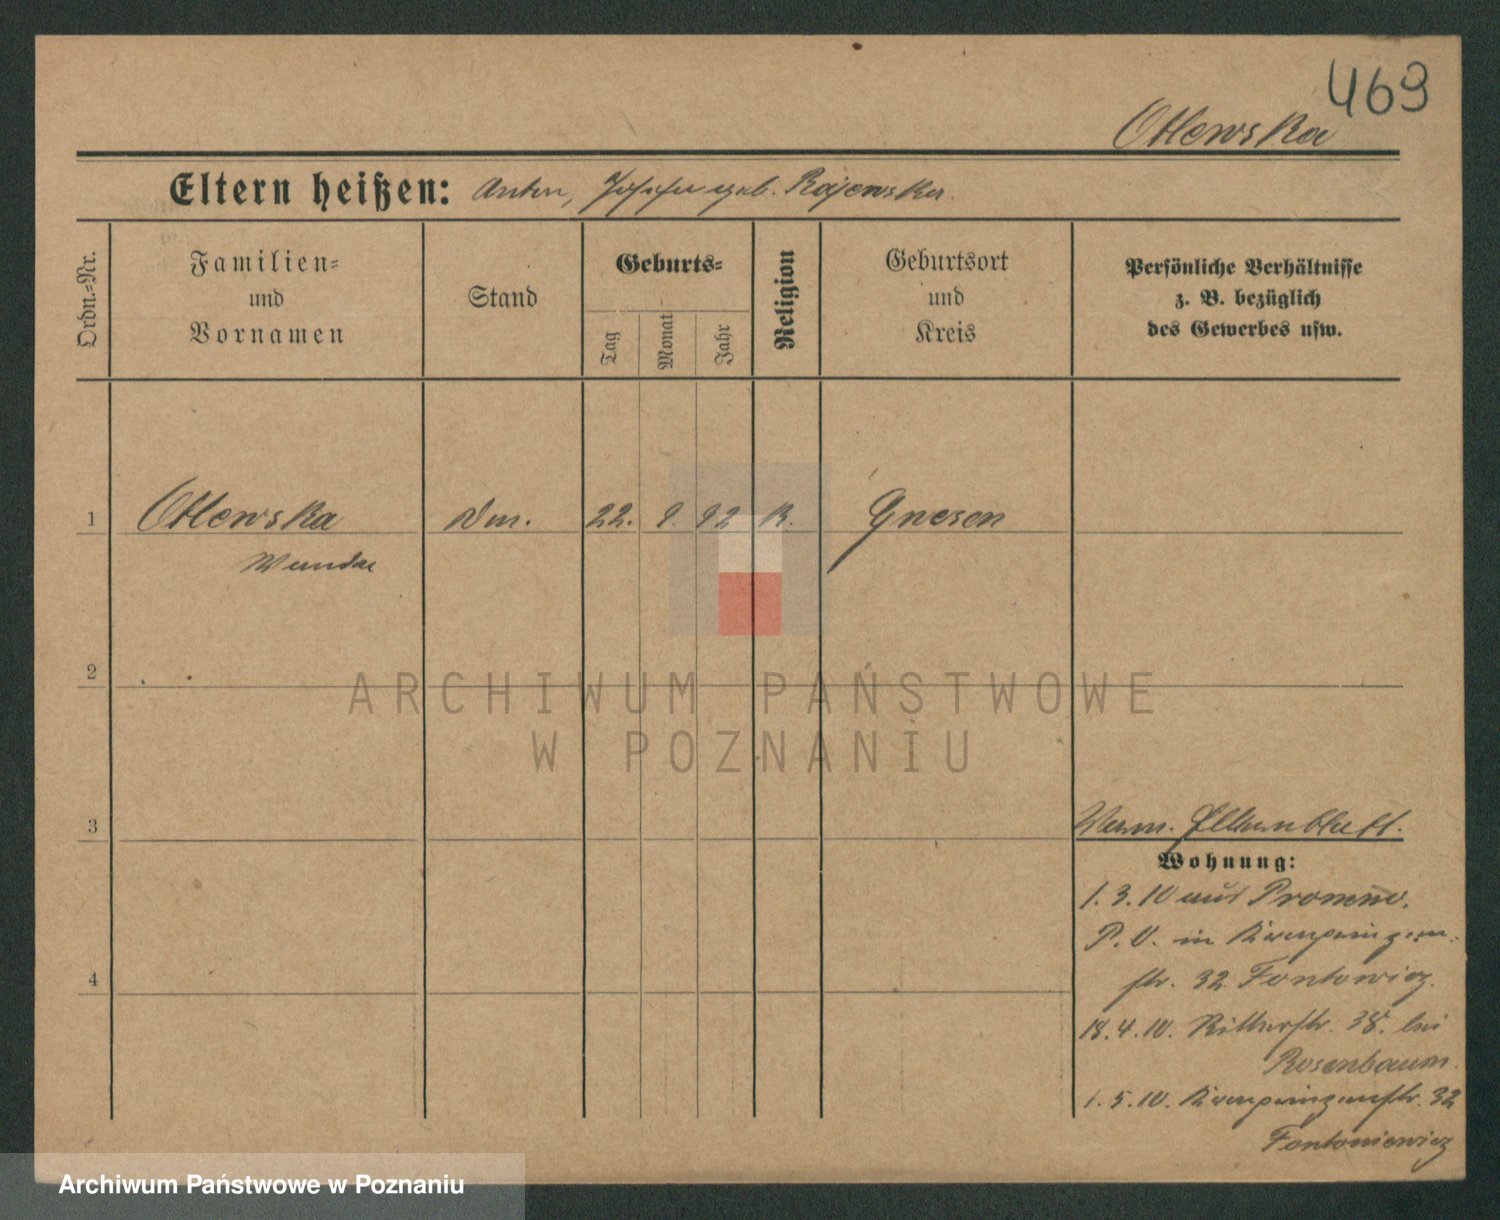 469
Otlewska
Eltern heißen: Anton, Josefa geb. Rajewska.
Ordn.=Nr.
Familien=
und
Vornamen
Stand
Geburts=
Tag
Monat
Jahr
Religion
Geburtsort
und
Kreis
Persönliche Verhältnisse
z. B. bezüglich
des Gewerbes usw.
1 Otlewska 22. 9. 92 K. Gnesen
Wanda
2
ARCHIWUM PAŃSTWOWE
W POZNANIU
3
Elternblatt.
Wohnung:
1.3.10 aus
P. O. in Kronprinzen-
str. 32
18.4.10. Ritterstr. 38. bei
Rosenbaum.
1.5.10. Kronprinzenstr. 32
Fontoniewicz
4
Archiwum Państwowe w Poznaniu